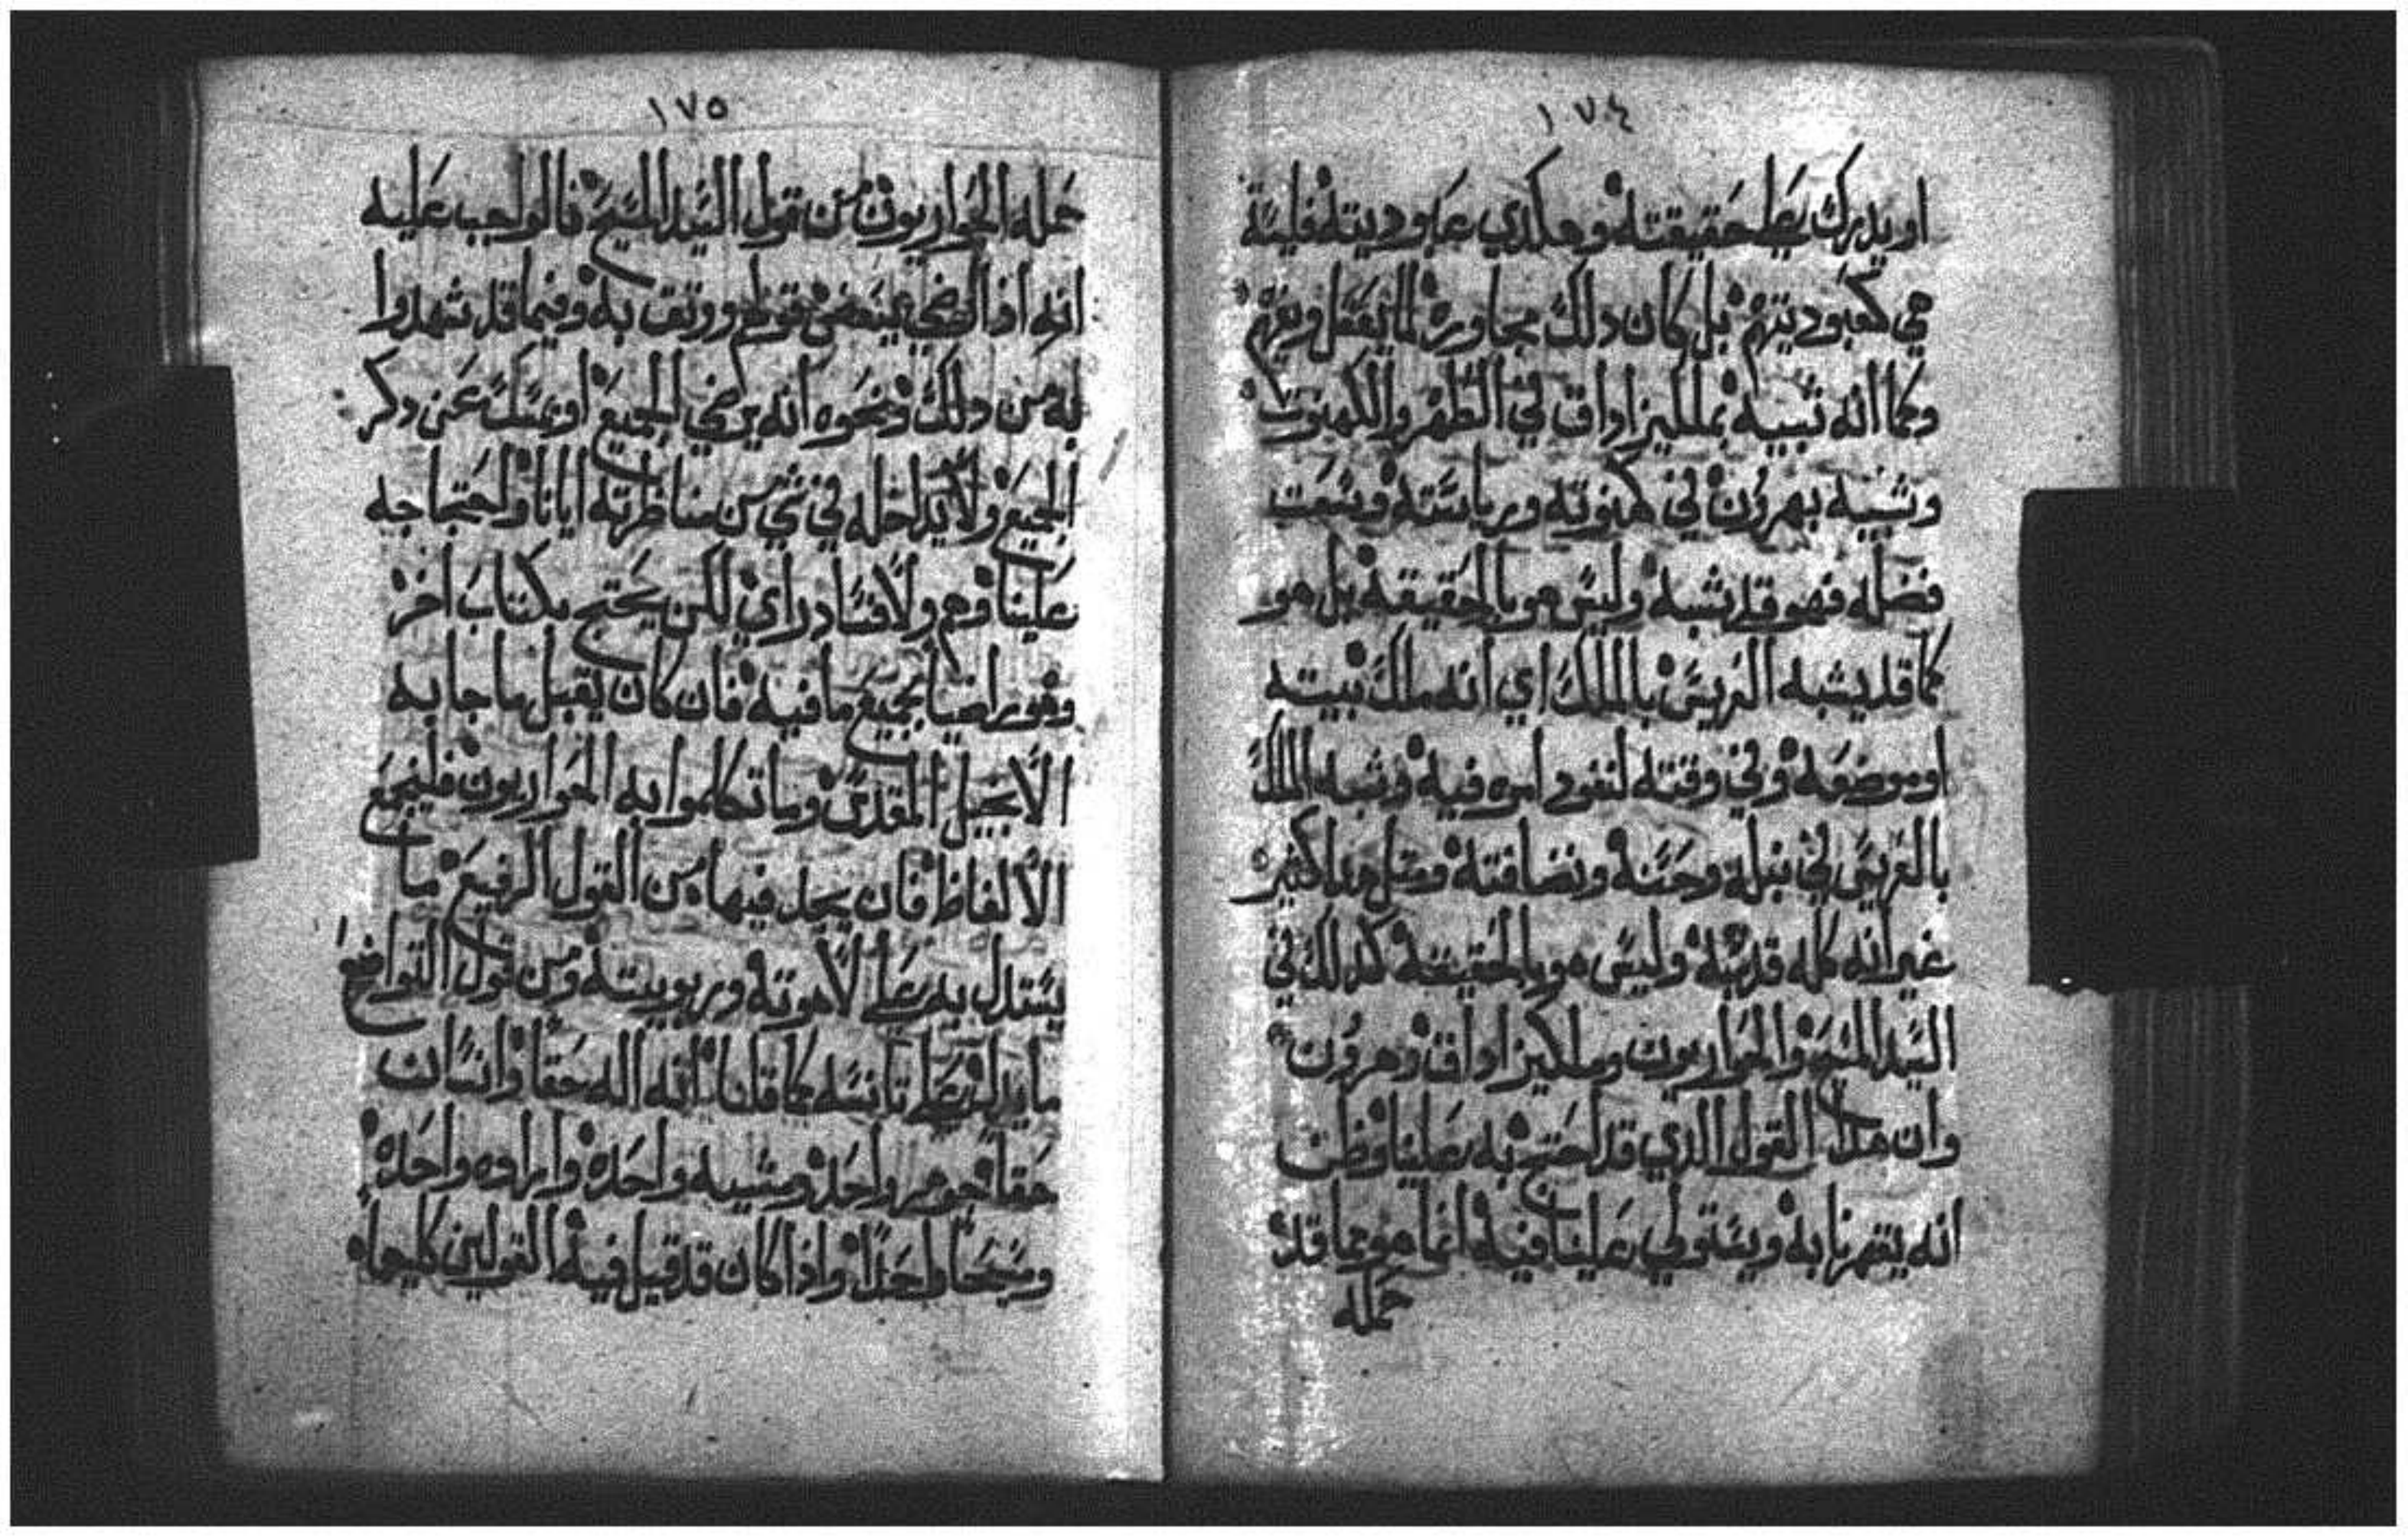 ١٧٤
او يدرك على حقيقته وهكدي عبوديته فليسة
هي كعبوديتهم بل كان دلك مجاوره لما يعقل ويفهم
وكما انه شبيه بملكيزاداق في الطهر والكهنوت
وشبيه بهرون في كهنوته ورياسته وبسبب
فضله فهو قد يشبه وليس هو بالحقيقه بل هو
كما قد يشبه العريس بالملك اي انه ملك بيته
او موضعه وفي وقته لنفود امره فيه وشبه الملك
بالعريس في نبله وحسنه ونضافته ومثل هدا كثير
غير انه كله قد يشبه وليس هو بالحقيقه كدلك في
السيد المسيح والحواريون وملكيزاداق وهرون
وان هدا القول الدي قد احتج به علينا وظن
انه يقهرنا به ويستولي علينا فيه انما هو مما قد
حمله
١٧٥
حمله الحواريون من قول السيد المسيح فالواجب عليه
انه اذا رضي ببعض قولهم ووثق به وفيما قد شهدوا
به من دلك ونحوه انه يرضي الجميع او يمسك عن دكر
الجميع ولا يداخله في شي من مناظرته ايانا واحتجاجه
علينا وهم ولا فساد راي لكن يحتج بكتاب اخر
وهو راضيا بجميع ما فيه فان كان يقبل ما جا به
الانجيل المقدس وما تكلموا به الحواريون فليجمع
الالفاظ فان يجد فيها من القول الرفيع ما
يستدل به على لاهوته وربوبيته ومن قول التواضع
ما يدله على تانسه كما قلنا انه اله حقا وانسان
حقا جوهر واحد ومشيه واحده واراده واحده
ومسيحا واحدا واذا كان قد قيل فيه القولين كليهما